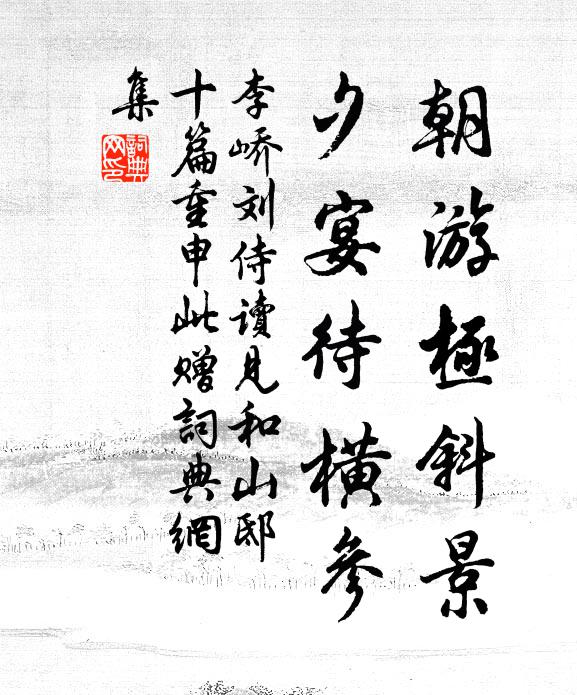 朝游極斜景
夕宴待橫參
李嶠刘侍讀見和山邸
十篇重申此贈詞典網
集
詞典
网印